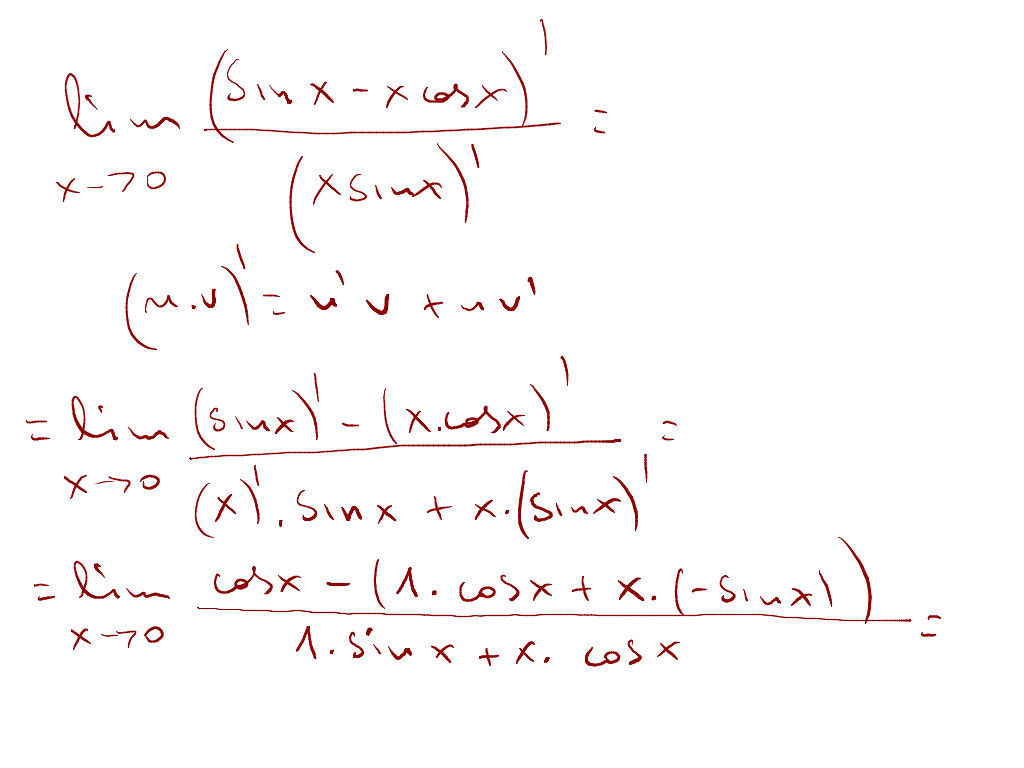 lim (sin x - x cos x)' / (x sin x)' =
x→0
(u.v)' = u'v + uv'
= lim (sin x)' - (x.cos x)' / (x)'. sin x + x.(sin x)' =
x→0
= lim cos x - (1. cos x + x. (-sin x)) / 1. sin x + x. cos x =
x→0